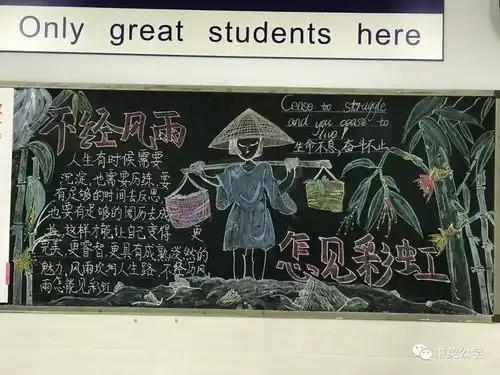 Only great students here
不经风雨
Cease to struggle
and you cease to
live!
生命不息,奋斗不止
人生有时候需要
沉淀,也需要历练,要
有足够的时间去反思,
也要有足够的阅历去成
长,这样才能让自己变得更
完美,更睿智,更具有成熟淡然的
魅力,风雨坎坷人生路,不经历风
雨怎能见彩虹
怎见彩虹
中英公学